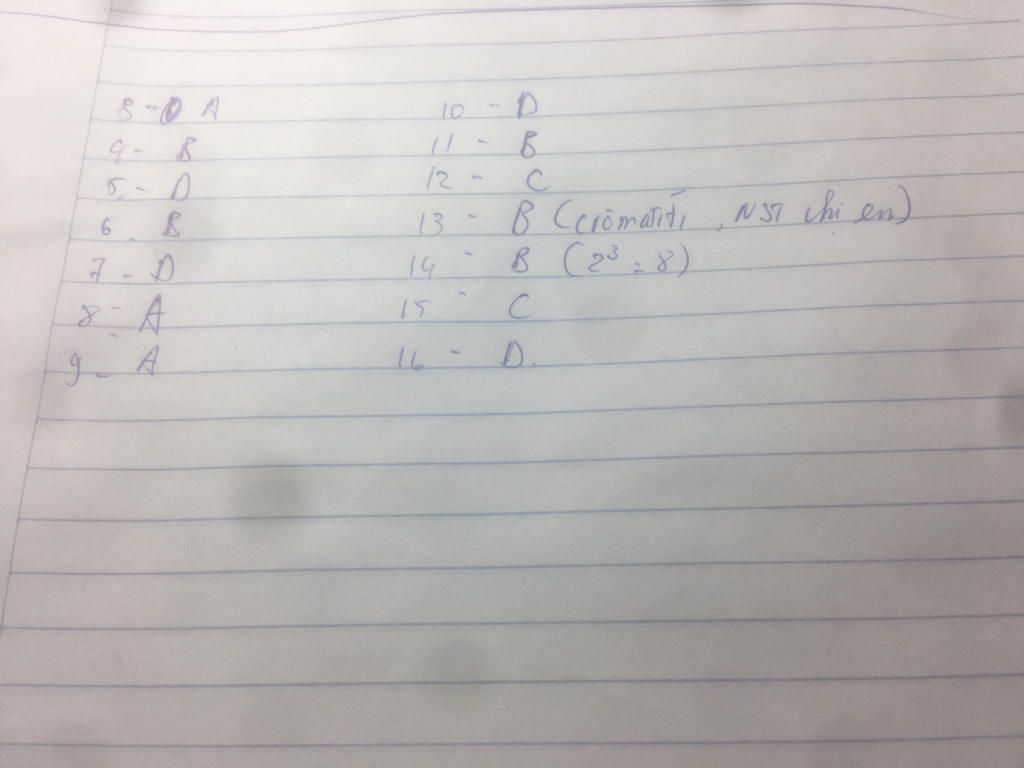 3 - A
4 - B
5 - D
6 - B
7 - D
8 - A
9 - A
10 - D
11 - B
12 - C
13 - B (crômatit, NST chị em)
14 - B (2³ = 8)
15 - C
16 - D.